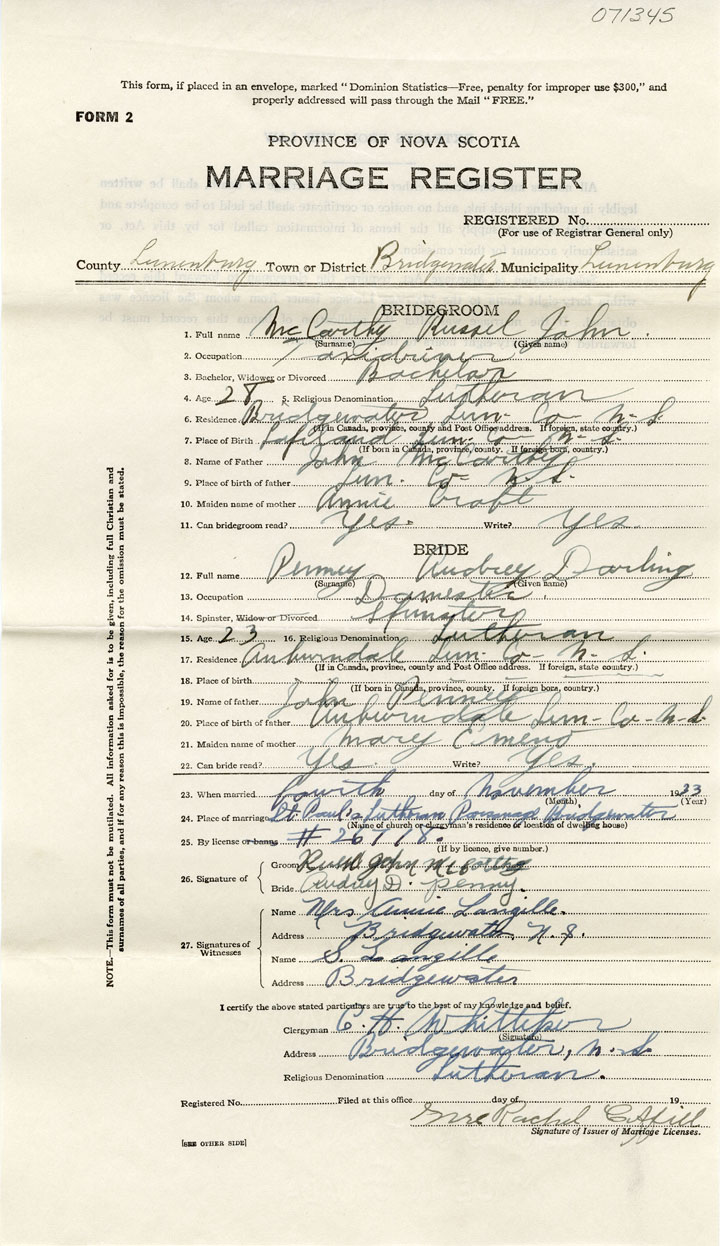 071345
This form, if placed in an envelope, marked "Dominion Statistics—Free, penalty for improper use $300," and
properly addressed will pass through the Mail "FREE."
FORM 2
PROVINCE OF NOVA SCOTIA
MARRIAGE REGISTER
REGISTERED No.
(For use of Registrar General only)
County Lunenburg Town or District Bridgewater Municipality Lunenburg
BRIDEGROOM
1. Full name McCarthy Russel John.
(Surname) (Given name)
2. Occupation Taxidriver
3. Bachelor, Widower or Divorced Bachelor
4. Age 28 5. Religious Denomination Lutheran
6. Residence Bridgewater Lun- Co- N-S
(If in Canada, province, county and Post Office address. If foreign, state country.)
7. Place of Birth Lun- Co- N-S.
(If born in Canada, province, county. If foreign born, country.)
8. Name of Father John McCarthy
9. Place of birth of father Lun. Co- N-S-
10. Maiden name of mother Annie Croft
11. Can bridegroom read? Yes. Write? Yes
BRIDE
12. Full name Penney Audrey Darling
(Surname) (Given name)
13. Occupation Domestic
14. Spinster, Widow or Divorced Spinster
15. Age 23 16. Religious Denomination Lutheran
17. Residence Auburndale Lun- Co- N-S.
(If in Canada, province, county and Post Office address. If foreign, state country.)
18. Place of birth
(If born in Canada, province, county. If foreign born, country.)
19. Name of father John Penney
20. Place of birth of father Auburndale Lun- Co-N-S
21. Maiden name of mother Mary Emeno
22. Can bride read? Yes. Write? Yes.
23. When married fourth day of November 1933
(Month) (Year)
24. Place of marriage St Paul's Lutheran Parsonage Bridgewater
(Name of church or clergyman's residence or location of dwelling house)
25. By license or banns # 26118.
(If by licence, give number.)
26. Signature of
Groom Russell John McCarthy
Bride Audrey D. Penny.
27. Signatures of Witnesses
Name Mrs Annie Langille.
Address Bridgewater, N.S.
Name S. Langille
Address Bridgewater
I certify the above stated particulars are true to the best of my knowledge and belief.
Clergyman C. H. Whitteker
(Signature)
Address Bridgewater, N.S.
Religious Denomination Lutheran.
Registered No. Filed at this office day of 19
Mrs Rachel
Signature of Issuer of Marriage Licenses.
[SEE OTHER SIDE]
NOTE.—This form must not be mutilated. All information asked for is to be given, including full Christian and
surnames of all parties, and if for any reason this is impossible, the reason for the omission must be stated.